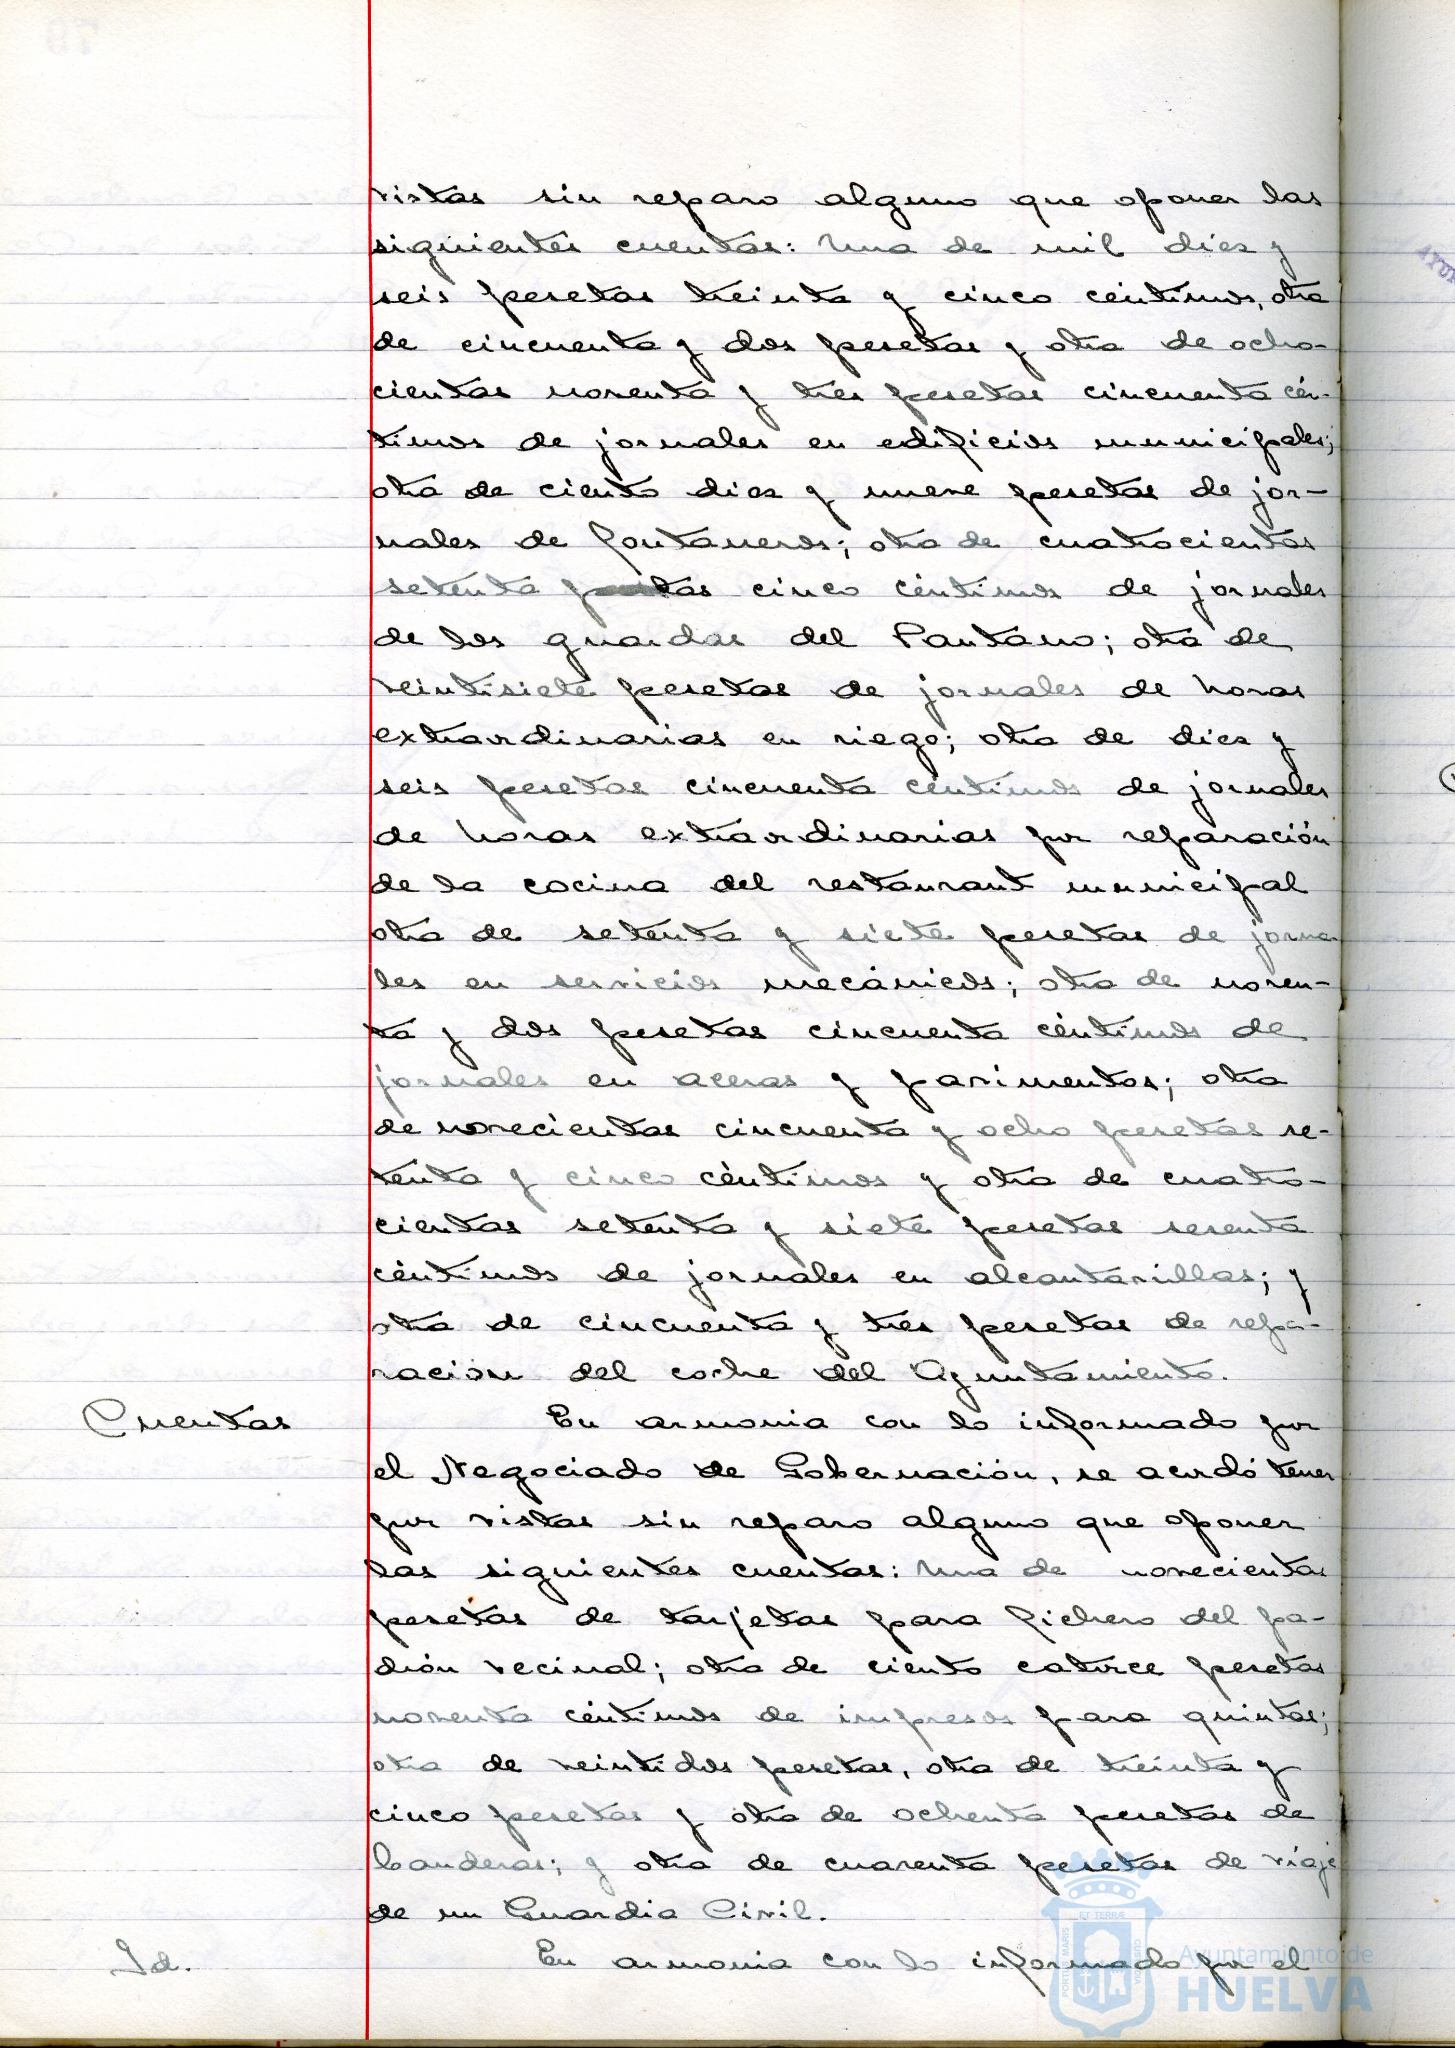 vistas sin reparo alguno que oponer las
siguientes cuentas: Una de mil diez y
seis pesetas treinta y cinco céntimos, otra
de cincuenta y dos pesetas y otra de ocho-
cientas noventa y tres pesetas cincuenta cén-
timos de jornales en edificios municipales;
otra de ciento diez y nueve pesetas de jor-
nales de fontaneros; otra de cuatrocientas
setenta pesetas cinco céntimos de jornales
de los guardas del Pantano; otra de
veintisiete pesetas de jornales de horas
extraordinarias en riego; otra de diez y
seis pesetas cincuenta céntimos de jornales
de horas extraordinarias por reparación
de la cocina del restaurant municipal
otra de setenta y siete pesetas de jorna
les en servicios mecánicos; otra de noven-
ta y dos pesetas cincuenta céntimos de
jornales en aceras y pavimentos; otra
de novecientas cincuenta y ocho pesetas se-
tenta y cinco céntimos y otra de cuatro-
cientas setenta y siete pesetas sesenta
céntimos de jornales en alcantarillas; y
otra de cincuenta y tres pesetas de repa-
ración del coche del Ayuntamiento.
Cuentas En armonia con lo informado por
el Negociado de Gobernación, se acordó tener
por vistas sin reparo alguno que oponer
las siguientes cuentas: Una de novecientas
pesetas de tarjetas para fichero del pa-
drón vecinal; otra de ciento catorce pesetas
noventa céntimos de impresos para quintas;
otra de veintidos pesetas, otra de treinta y
cinco pesetas y otra de ochenta pesetas de
banderas; y otra de cuarenta pesetas de viaje
de un Guardia Civil.
Id. En armonia con lo informado por el
Ayuntamiento de
HUELVA